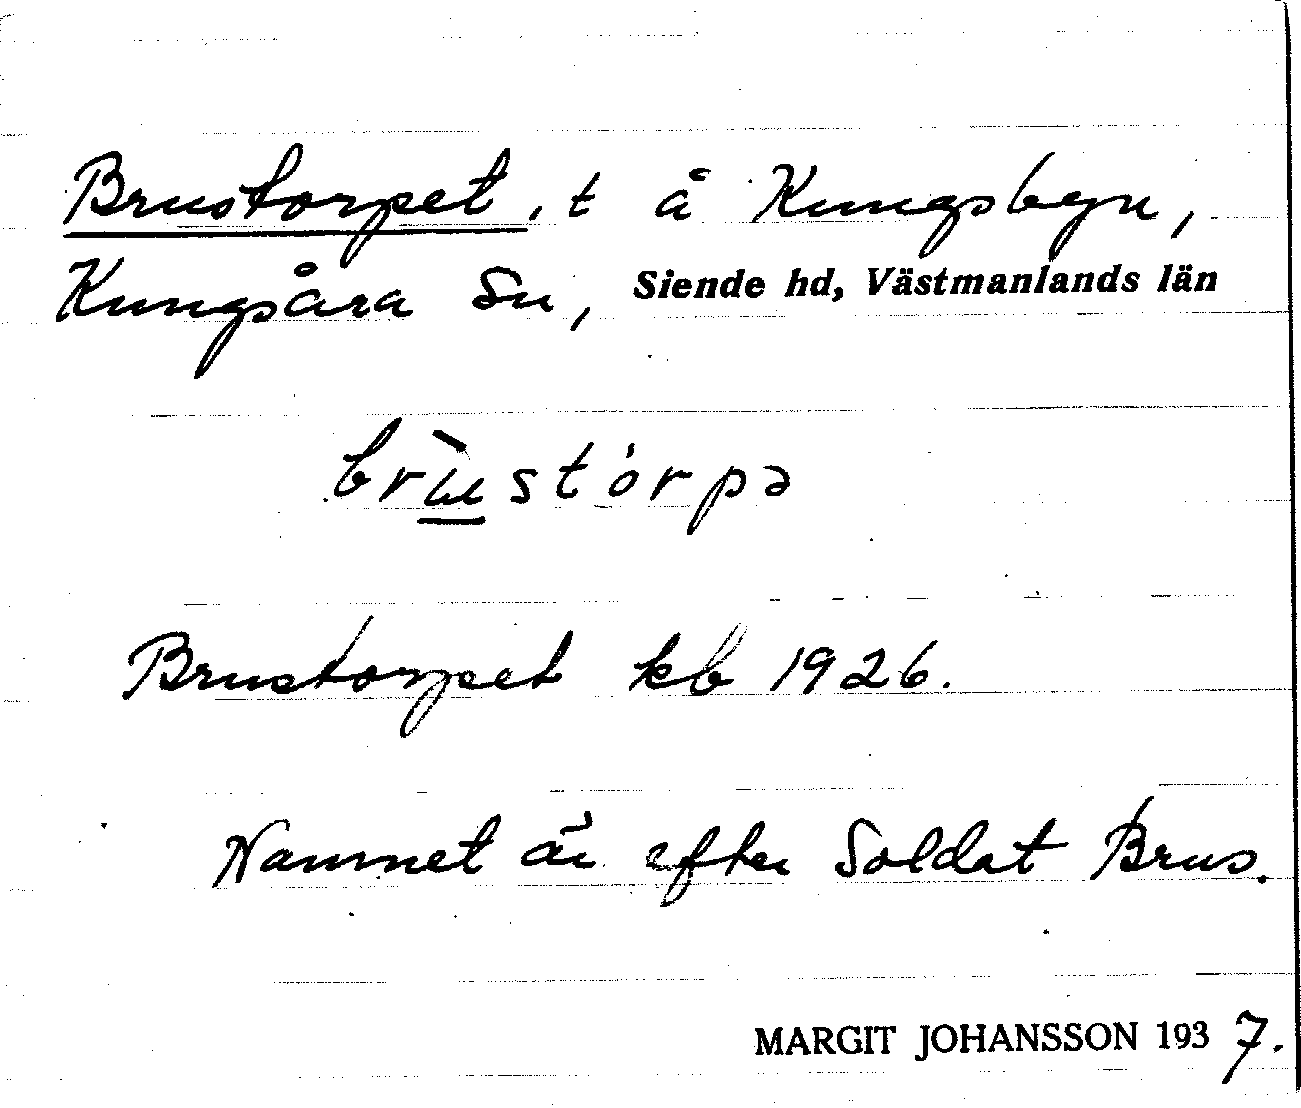 Brustorpet, t å Kungsbyn,
Kungsåra sn, Siende hd, Västmanlands län
brùstórpə
Brustorpet kb 1926.
Namnet är efter Soldat Brus.
MARGIT JOHANSSON 1937.